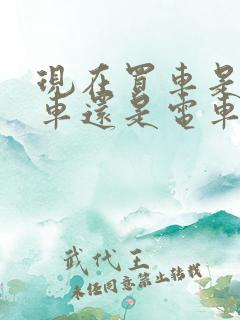 現在買車是
車還是電車
武代王
未經同意禁止转载